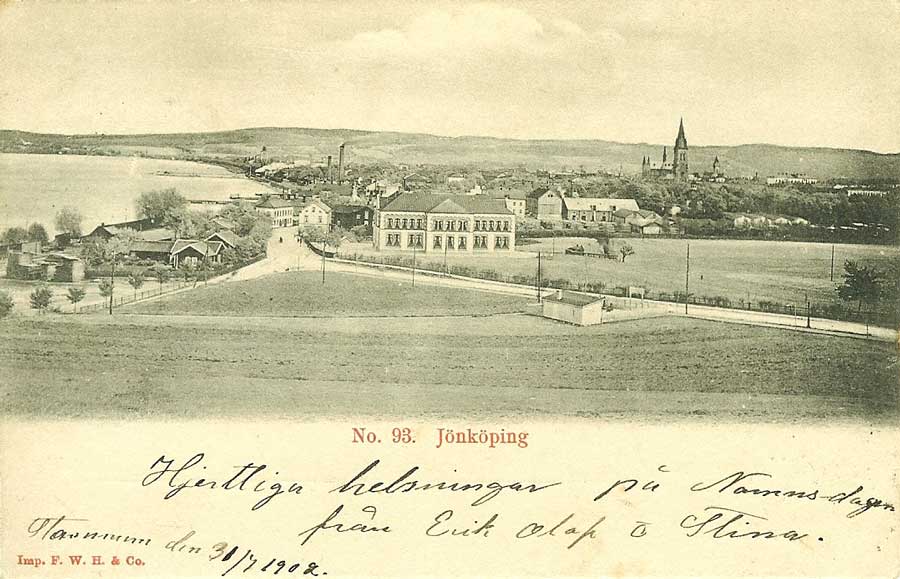 No. 93. Jönköping
Hjertliga helsningar på Namns-dagen
från Erik Olop o Stina.
den 31/7 1902.
Imp. F. W. H. & Co.